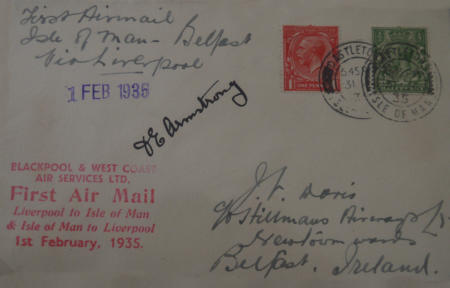 First Airmail
Isle of Man - Belfast
Via Liverpool
1 FEB 1935
D E Armstrong
BLACKPOOL & WEST COAST
AIR SERVICES LTD.
First Air Mail
Liverpool to Isle of Man
& Isle of Man to Liverpool
1st February, 1935.
ONE PENNY
CASTLETOWN
5.45
31
ISLE OF MAN
35
J. Doris
c/o Stillmans Airways Ld
Newtownwards
Belfast, Ireland.